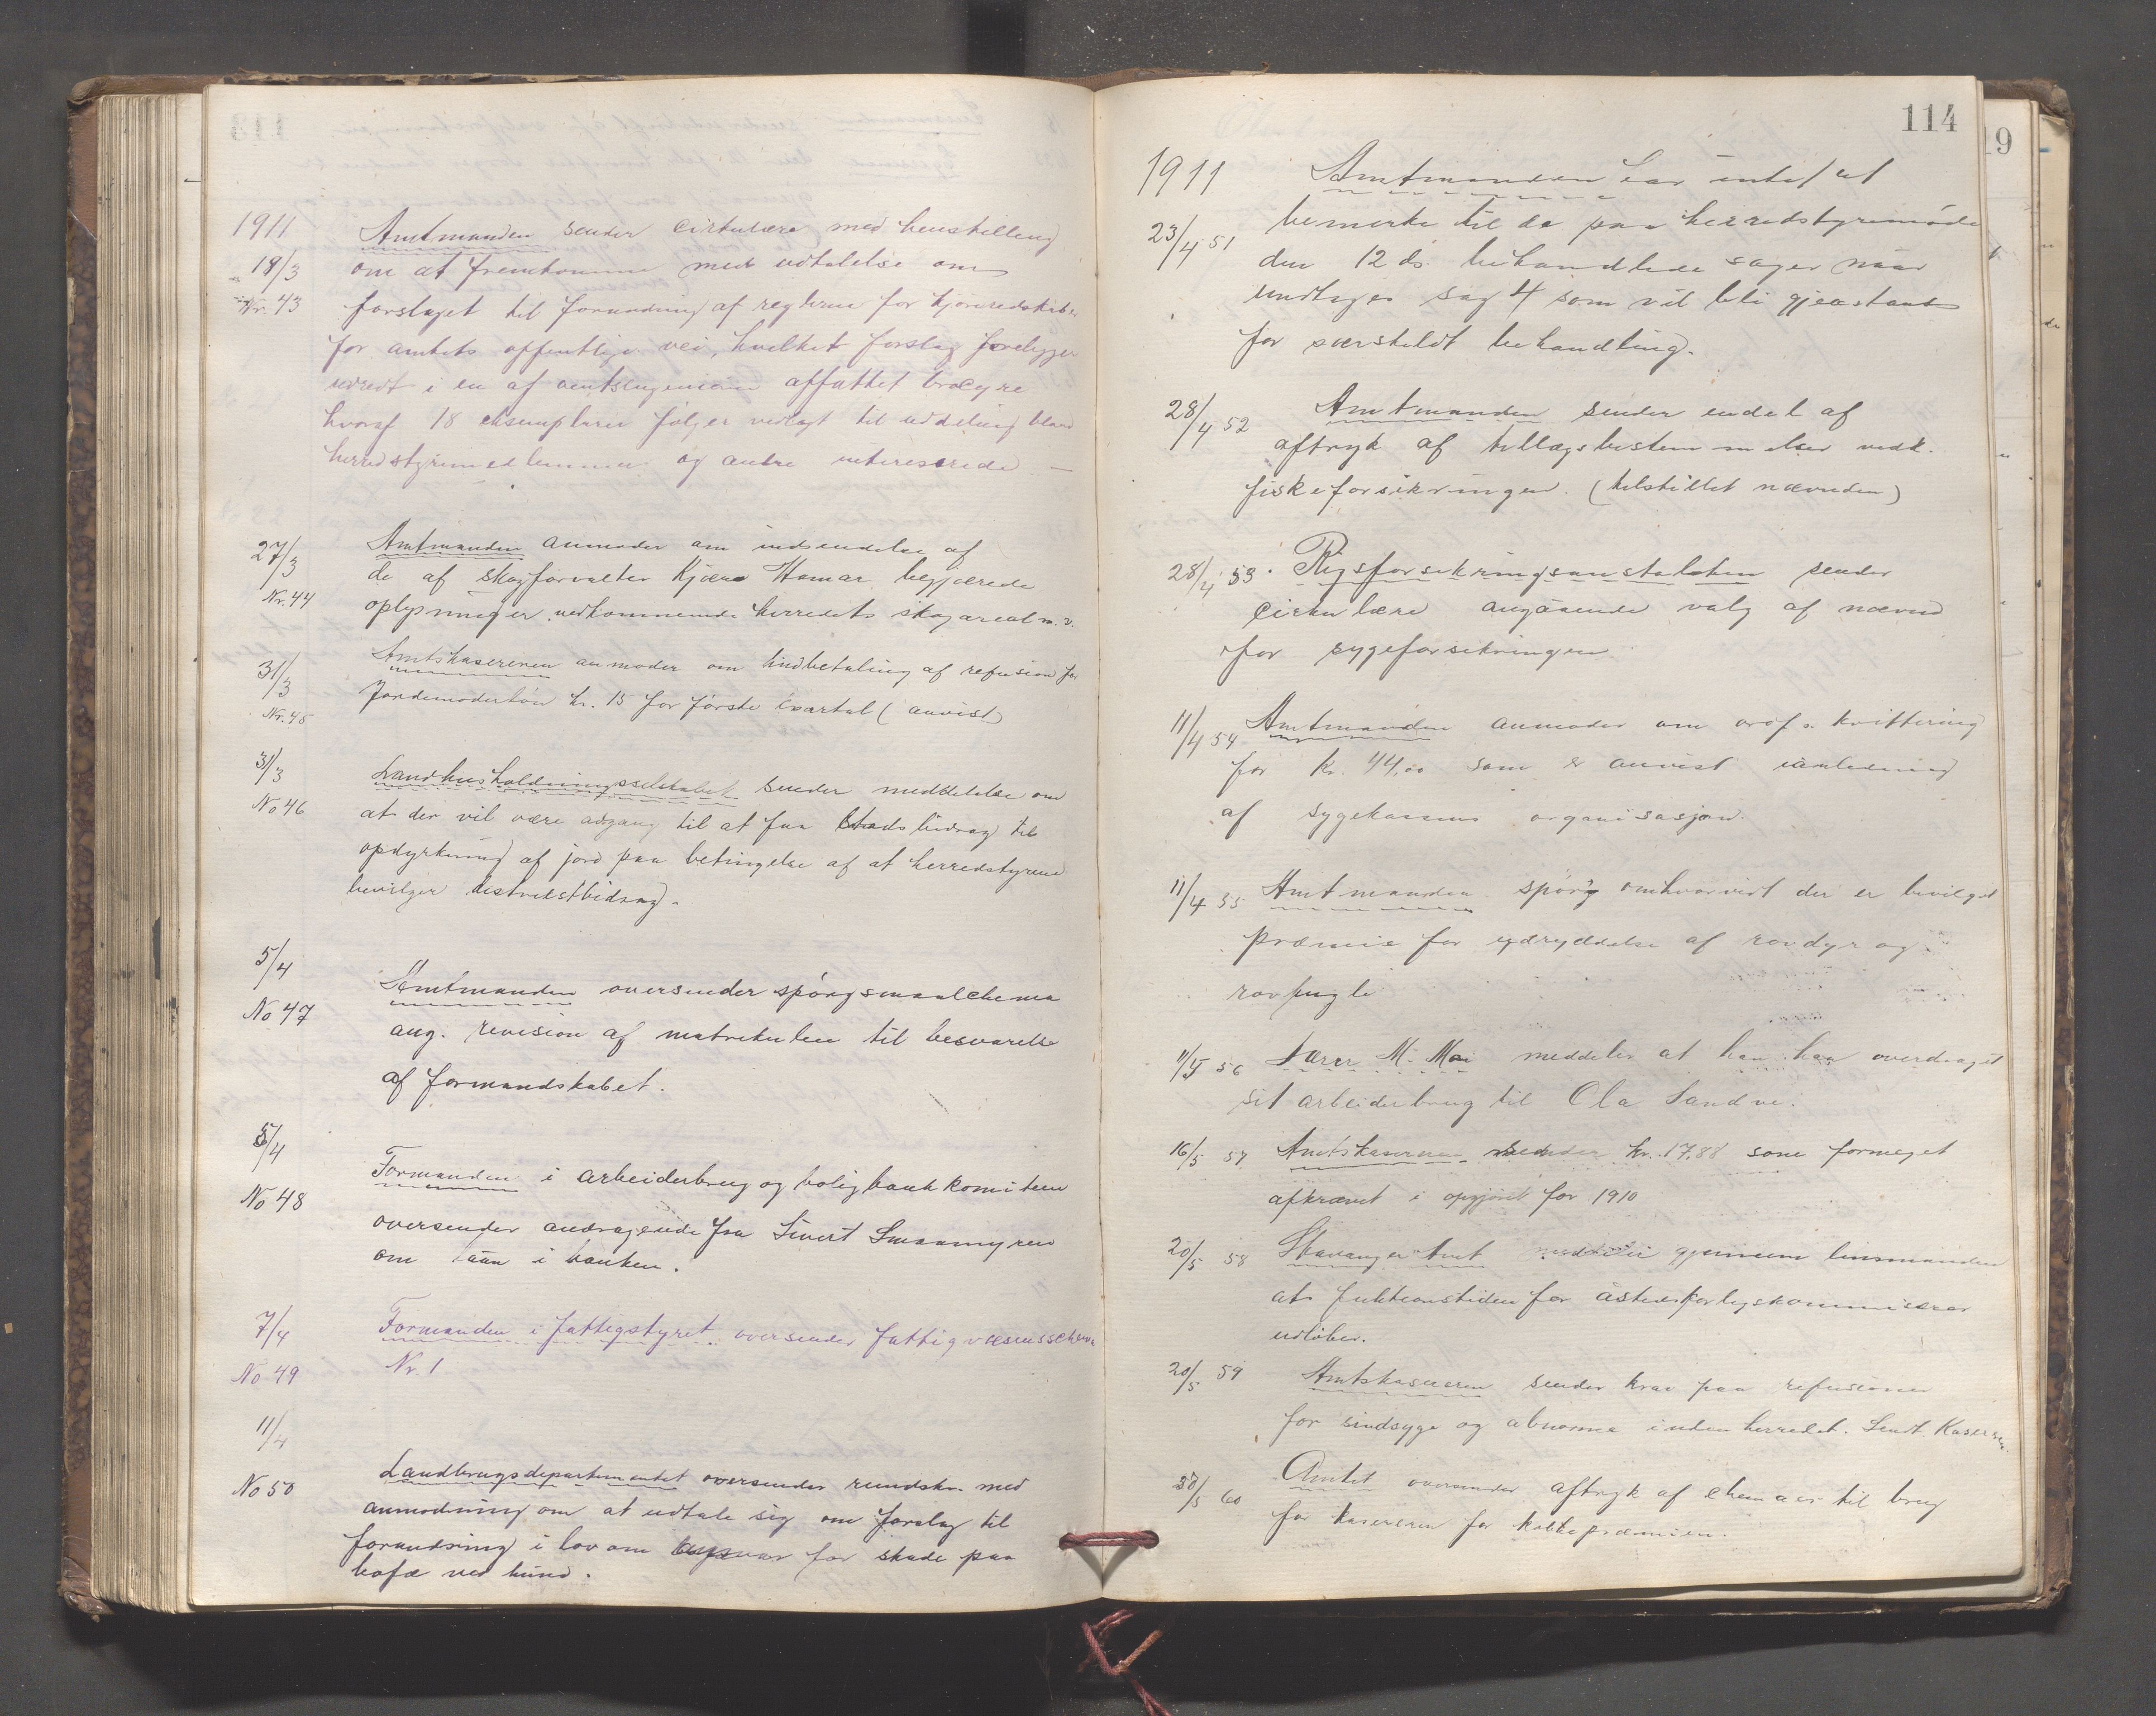 1911
18/3
Nr. 43
Amtmanden sender cirkulære med henstilling
om at fremkomme med udtalelse om
forslaget til forandring af reglerne for kjøreredskaber
for amtets offentlige vei, hvilket forslag foreligger
udredt i en af amtsingeniøren affattet brocyre
hvoraf 18 eksemplarer følger vedlagt til uddeling bland
herredstyremedlemmer og andre interesserede –
27/3
Nr. 44
Amtmanden anmoder om indsendelse af
de af skogforvalter Kjær Hamar begjærede
oplysninger vedkommende herredets skogareal m.v.
31/3
Nr. 45
Amtskasereren anmoder om indbetaling af refusion for
Jordemoderløn kr. 15 for første kvartal (anvist)
31/3
No 46
Landhusholdningsselskabet sender meddelelse om
at der vil være adgang til at faa Stads bidrag til
opdyrkning af jord paa betingelse af at herredstyrene
bevilger distriktsbidrag.
5/4
No 47
Amtmanden oversender spórgsmaalchema
ang. revision af matrikulen til besvarelse
af formandskabet.
5/4
No 48
Formanden i arbeiderbrug og boligbank komiteen
oversender andragende fra Sivert Smaamyren
om laan i banken.
7/4
No 49
Formanden i fattigstyret oversender fattigvæsensschema
Nr. 1
11/4
No 50
Landbrugsdepartementet oversender rundskr. med
anmodning om at udtale sig om forslag til
forandring i lov om ansvar for skade paa
bofæ ved hund.
114
19
1911
23/4 51
Amtmanden har intet at
bemerke til de paa herredstyremøde
den 12 ds. behandlede sager naar
undtages sag 4 som vil bli gjenstand
for særskildt behandling.
28/4 52
Amtmanden sender endel af
aftryk af tillægsbestemmelser vedk.
fiskeforsikringen. (tilstillet nævnden)
28/4 53
Rigsforsikringsanstalten sender
cirkulære angående valg af nævnd
for sygeforsikringen
11/4 54
Amtmanden anmoder om kvittering
for Kr. 44,00 som er anvist i anledning
af sygekassens organisasjon.
11/4 55
Amtmanden spørg omhvorvidt der er bevilget
præmie for ydryddelse af rovdyr og
rovfugle
11/5 56
Lærer M. Moi meddeler at han har overdraget
sit arbeiderbrug til Ola Sandve.
16/5 57
Amtskasereren sender kr. 17.88 som formeget
afkrævet i opgjöret for 1910
20/5 58
Stavanger Amt meddeler gjennem linsmanden
at funktionstiden for åstedsforligskommiserer
udløber.
20/5 59
Amtskasereren sender krav paa refusioner
for sindsyge og abnorme inden herredet. Sendt Kasereren
30/5 60
Amtet oversender aftryk af chemaer til brug
for kasereren for kobbepræmien.